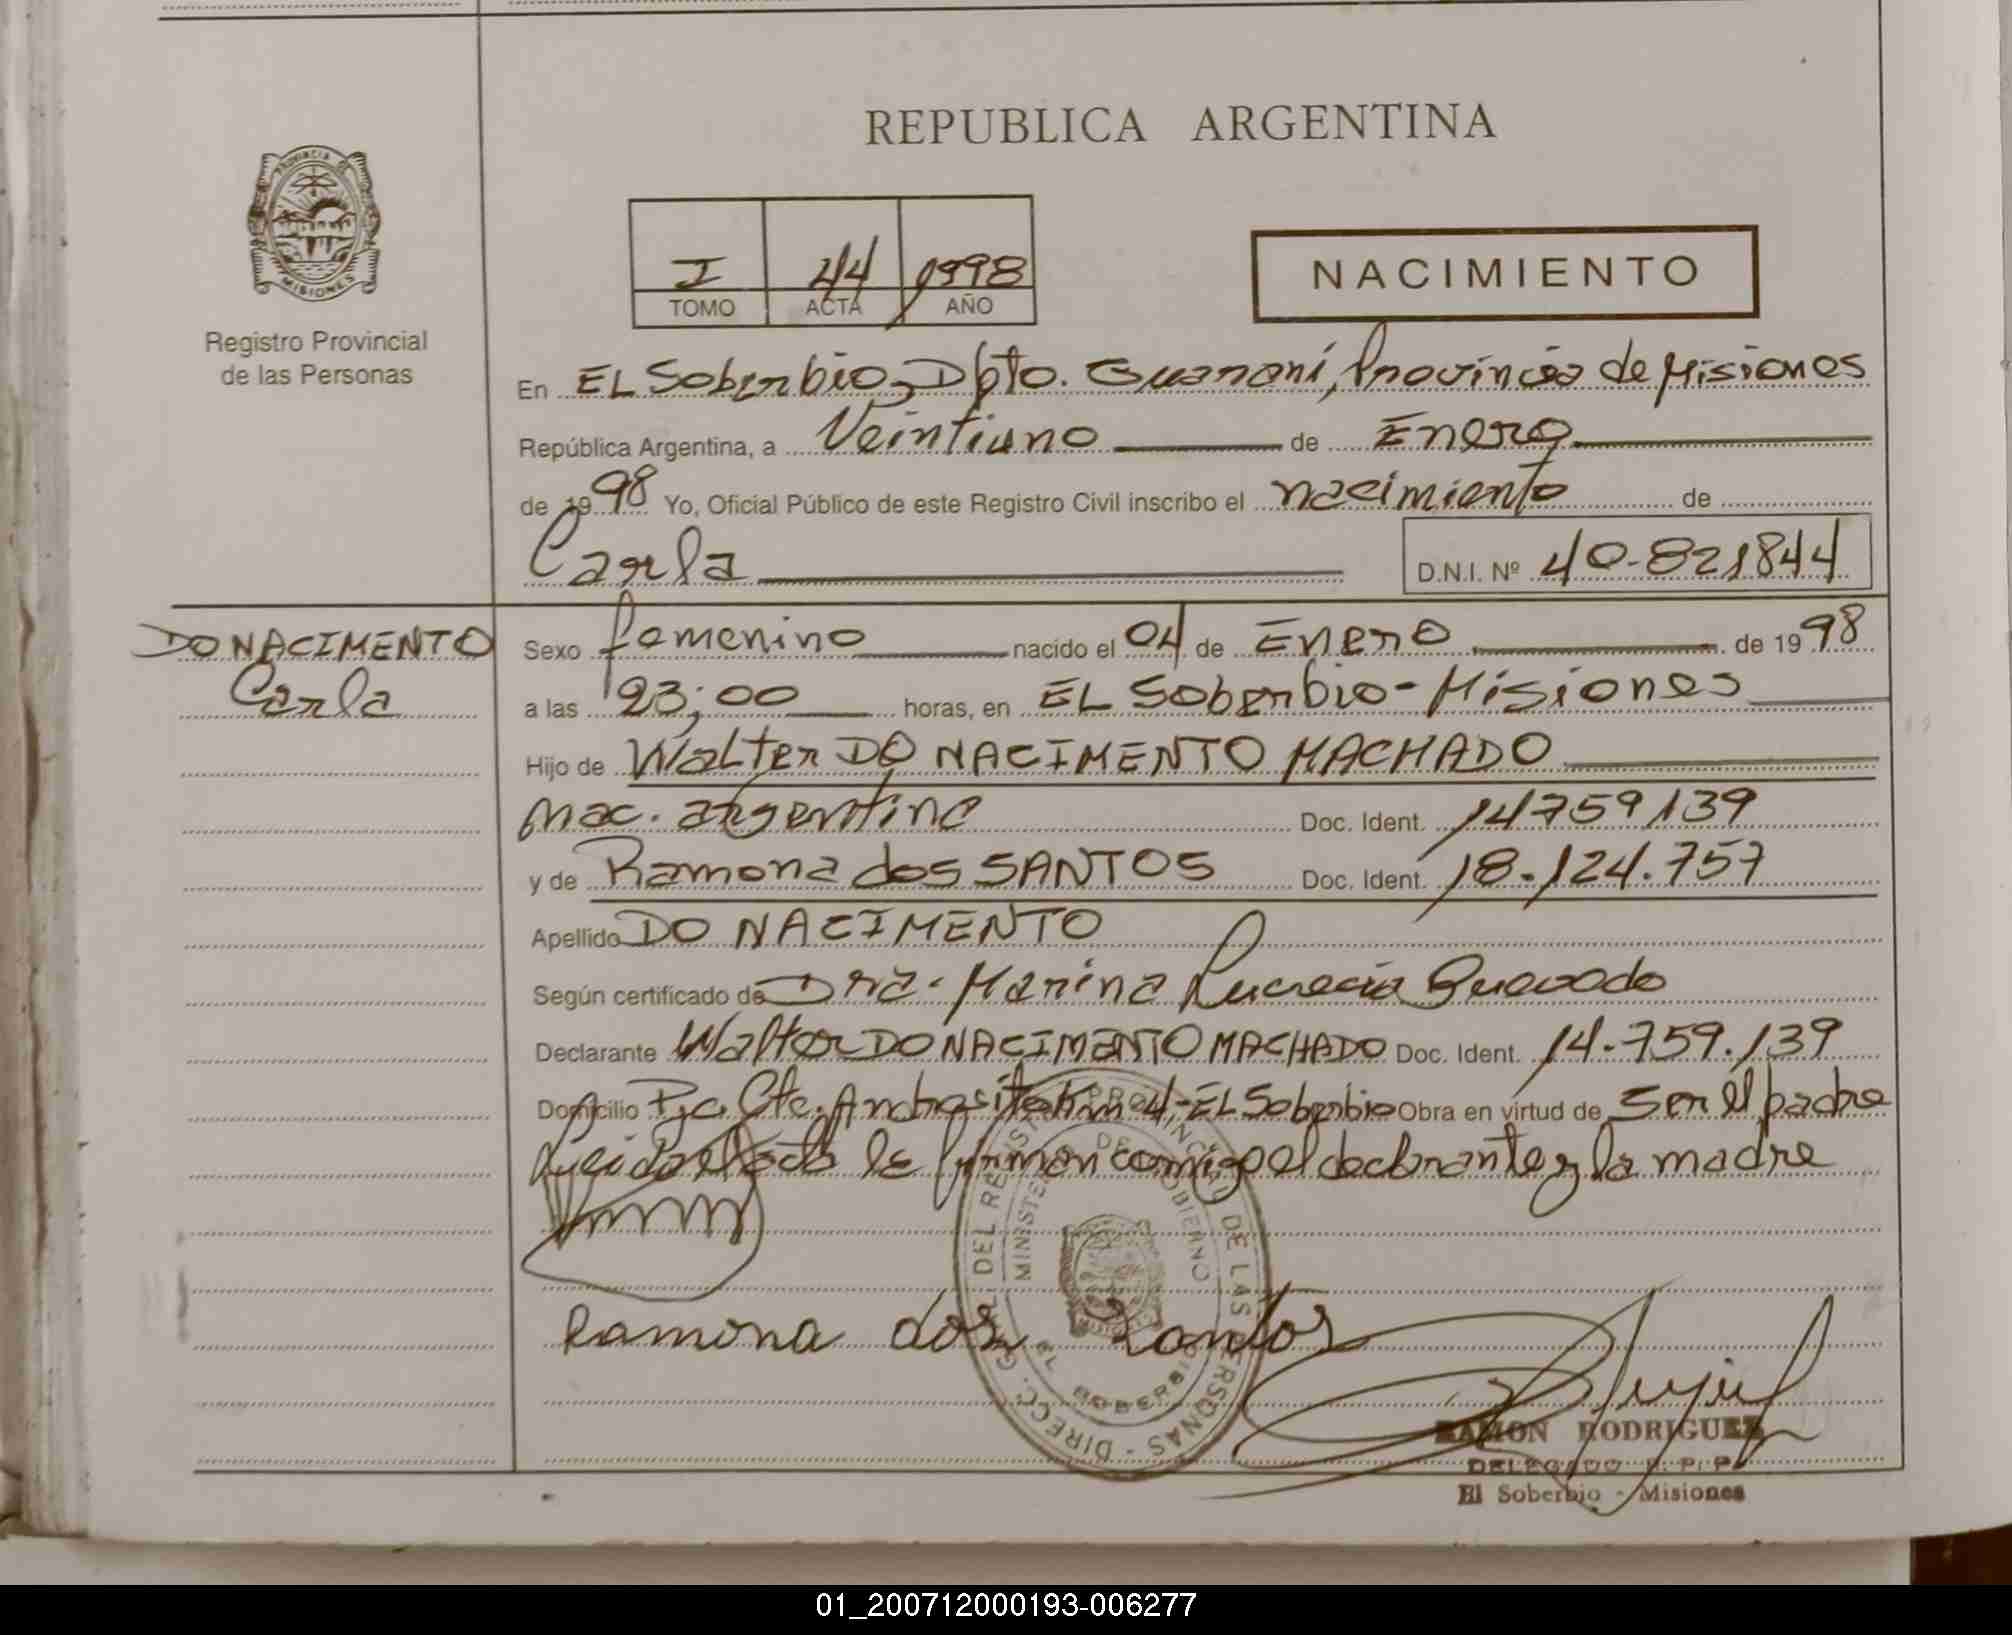 REPUBLICA ARGENTINA
PROVINCIA DE
MISIONES
Registro Provincial
de las Personas
I 44 1998
TOMO ACTA AÑO
NACIMIENTO
En EL Soberbio, Dpto. Guaraní, Provincia de Misiones
República Argentina, a Veintiuno de Enero
de 1998 Yo, Oficial Público de este Registro Civil inscribo el nacimiento de
Carla D.N.I. Nº 40-821844
DO NACIMENTO
Carla
Sexo femenino nacido el 04 de Enero de 1998
a las 23;00 horas, en EL Soberbio-Misiones
Hijo de Walter DO NACIMENTO MACHADO
nac. argentina Doc. Ident. 14759139
y de Ramona dos SANTOS Doc. Ident. 18.124.757
Apellido DO NACIMENTO
Según certificado de Dra. Marina Lucrecia Quevedo
Declarante Walter DO NACIMENTO MACHADO Doc. Ident. 14.759.139
Domicilio Pje. Cte. Andresito Km 4-EL Soberbio Obra en virtud de ser el padre
la firman conmigo el declarante y la madre
Ramona dos Santos
DIRECC. GRAL. DEL REGISTRO PROVINCIAL DE LAS PERSONAS
MINISTERIO DE GOBIERNO
EL SOBERBIO
RAMON RODRIGUEZ
DELEGADO R. P. P.
El Soberbio - Misiones
01_200712000193-006277